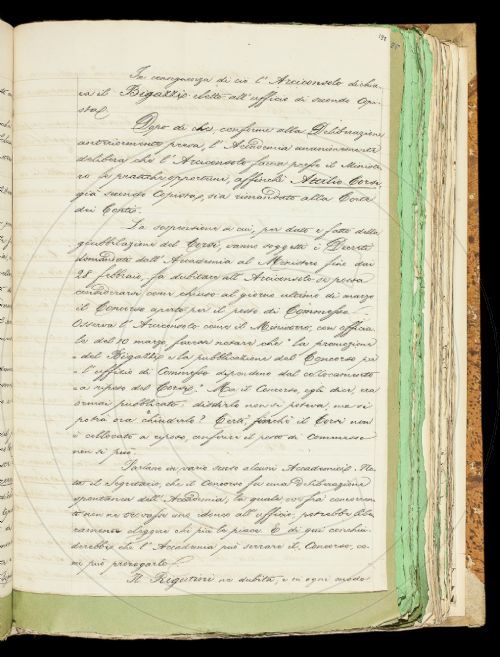 192
85
In conseguenza di ciò l'Arciconsolo dichia-
ra il Bigazzi eletto all'ufficio di secondo Copi-
sta.
Dopo di che, conforme alla Deliberazione
anteriormente presa, l'Accademia unanimemente
delibera che l'Arciconsolo faccia presso il Ministe-
ro le pratiche opportune, affinchè Attilio Corsi,
già secondo Copista, sia rimandato alla Corte
dei Conti.
La sospensione a cui, per detto e fatto della
giubbilazione del Corsi, vanno soggetti i Decreti
domandati dall'Accademia al Ministero fino dai
28 febbraio, fa dubitare all'Arciconsolo se possa
considerarsi come chiuso al giorno ultimo di marzo
il Concorso aperto per il posto di Commesso.
Osserva l'Arciconsolo come il Ministero, con officia-
le del 10 marzo, faceva notare che "la promozione
"del Bigazzi e la pubblicazione del Concorso per
"l'ufficio di Commesso dipendono dal collocamento
"a riposo del Corsi." Ma il Concorso, egli dice, era
ormai pubblicato: disdirlo non si poteva, ma si
potrà ora chiuderlo? Certo, finchè il Corsi non
è collocato a riposo, conferire il posto di Commesso
non si può.
Parlano in vario senso alcuni Accademici. No-
ta il Segretario, che il Concorso fu una deliberazione
spontanea dell'Accademia, la quale, se fra i concorren-
ti non ne trovasse uno idoneo all'ufficio, potrebbe libe-
ramente eleggere chi più le piace. E di qui conchiu-
derebbe che l'Accademia può serrare il Concorso, co-
me può prorogarlo.
Il Rigutini ne dubita, e in ogni modo